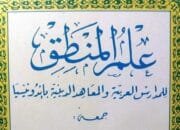 علم المنطق
للمدارس العربية والمعاهد الدينية بإندونيسيا
جمعه: